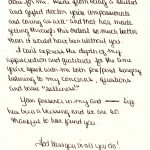 and gifted doctor your compassionate
and caring as well - and that has made
getting through this ordeal so much better
than it would have been without you.
I can't express the depth of my
appreciation and gratitude for the time
you've spent with me both pre/post surgery
listening to my concerns, questions
and various "silliness"
Your presence in my life
has been a blessing and we are so
thankful to have found you
God bless you in all you do!